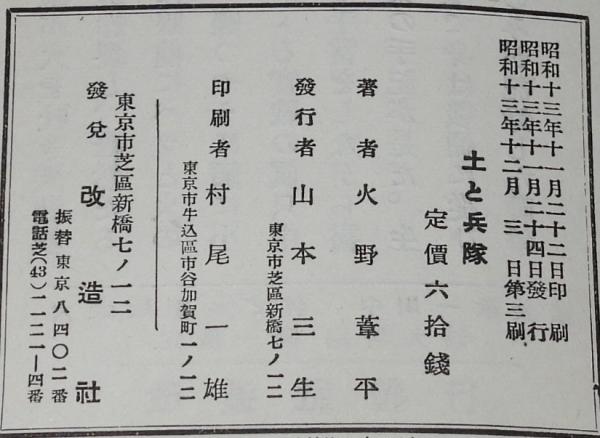 昭和十三年十一月二十二日印刷
昭和十三年十一月二十四日發行
昭和十三年十二月三日第三刷
土と兵隊
定價六拾錢
著者火野葦平
發行者山本三生
東京市芝區新橋七ノ一二
印刷者村尾一雄
東京市牛込區市谷加賀町一ノ一二
東京市芝區新橋七ノ一二
發兌改造社
振替東京八四〇二番
電話芝(43)一一二一―四番